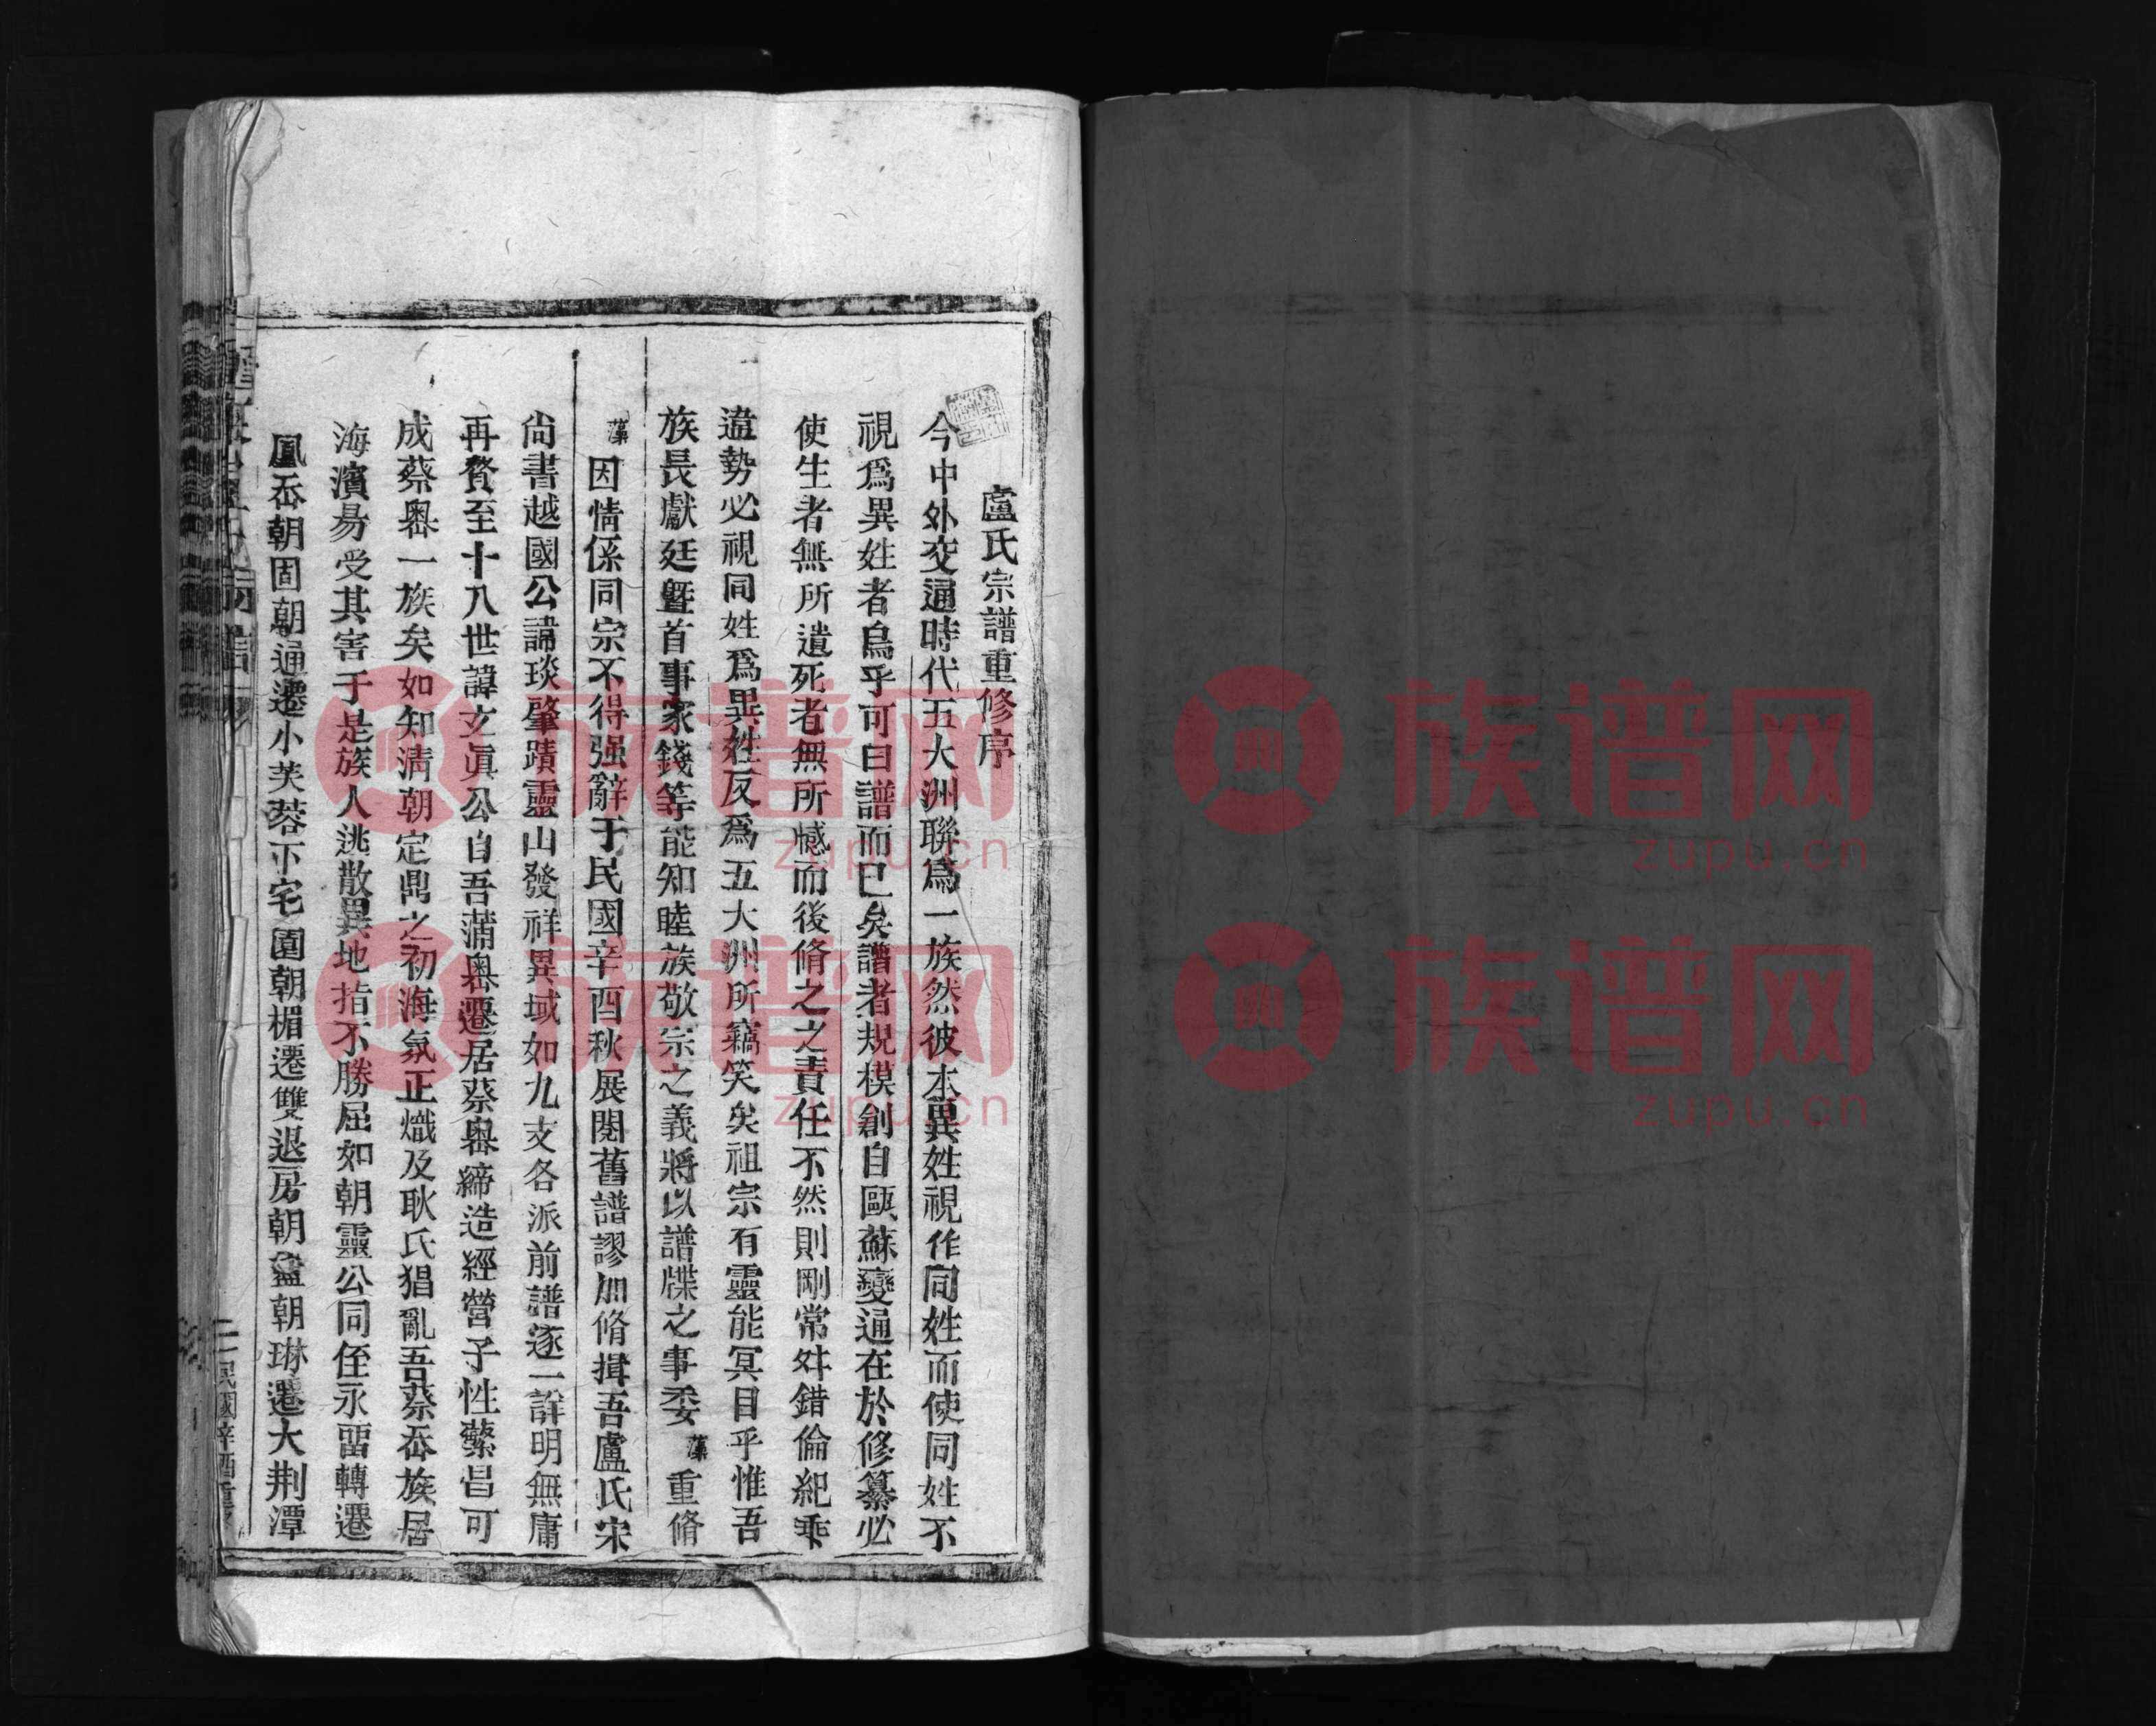 盧氏宗譜重修序
今中外交通時代五大洲聯爲一族然彼本異姓視作同姓而使同姓不
視爲異姓者烏乎可曰譜而已矣譜者規模創自歐蘇變通在於修纂必
使生者無所遺死者無所憾而後脩之之責任不然則剛常舛錯倫紀乖
違勢必視同姓爲異姓反爲五大洲所竊笑矣祖宗有靈能冥目乎惟吾
族長獻廷曁首事家錢等能知睦族敬宗之義將以譜牒之事委藻重脩
藻因情係同宗不得强辭于民國辛酉秋展閱舊譜謬加脩揖吾盧氏宋
尙書越國公諱琰肇蹟靈山發祥異域如九支各派前譜逐一詳明無庸
再贅至十八世諱文眞公自吾蒲嶴遷居蔡嶴締造經營子性蘩昌可
成蔡嶴一族矣如知清朝定鼎之初海氛正熾及耿氏猖亂吾蔡岙族居
海濱易受其害于是族人逃散異地指不勝屈如朝靈公同侄永畱轉遷
鳳岙朝固朝通遷小芙蓉下宅園朝楣遷雙退房朝盆朝琳遷大荆潭
二 民國辛酉重
族谱网
zupu.cn
族谱网
zupu.cn
族谱网
zupu.cn
族谱网
zupu.cn